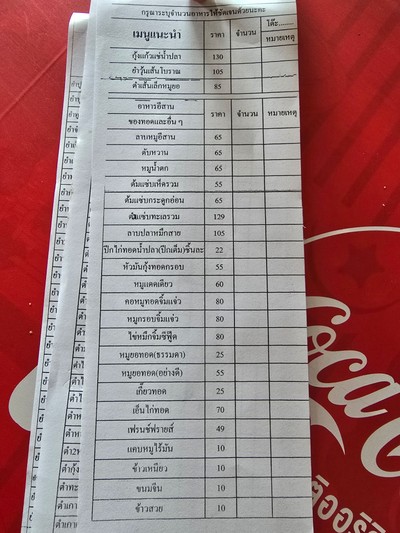 กรุณาระบุจำนวนอาหารให้ชัดเจนด้วยนะคะ
โต๊ะ.......
เมนูแนะนำ ราคา จำนวน หมายเหตุ
กุ้งแก้วแช่น้ำปลา 130
ยำวุ้นเส้นโบราณ 105
ตำเส้นเล็กหมูยอ 85
อาหารอีสาน
ของทอดและอื่น ๆ ราคา จำนวน หมายเหตุ
ลาบหมูอีสาน 65
ตับหวาน 65
หมูน้ำตก 65
ต้มแซ่บเห็ดรวม 55
ต้มแซ่บกระดูกอ่อน 65
ต้มแซ่บทะเลรวม 129
ลาบปลาหมึกสาย 105
ปีกไก่ทอดน้ำปลา(ปีกเต็ม)ชิ้นละ 22
หัวมันกุ้งทอดกรอบ 55
หมูแดดเดียว 60
คอหมูทอดจิ้มแจ่ว 80
หมูกรอบจิ้มแจ่ว 80
ไข่หมึกจิ้มซีฟู๊ด 80
หมูยอทอด(ธรรมดา) 25
หมูยอทอด(อย่างดี) 55
เกี๊ยวทอด 25
เอ็นไก่ทอด 70
เฟรนช์ฟรายส์ 49
แคบหมูไร้มัน 10
ข้าวเหนียว 10
ขนมจีน 10
ข้าวสวย 10